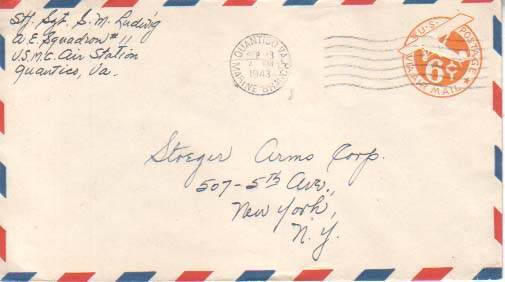 Stf. Sgt. S. M. Ludwig
A. E. Squadron #11
U.S.M.C. Air Station
Quantico, Va.
QUANTICO, VA.
1943
MARINE BRANCH
U.S. POSTAGE
6¢
VIA AIR MAIL
Stoeger Arms Corp.
507-5th Ave.,
New York,
N.Y.